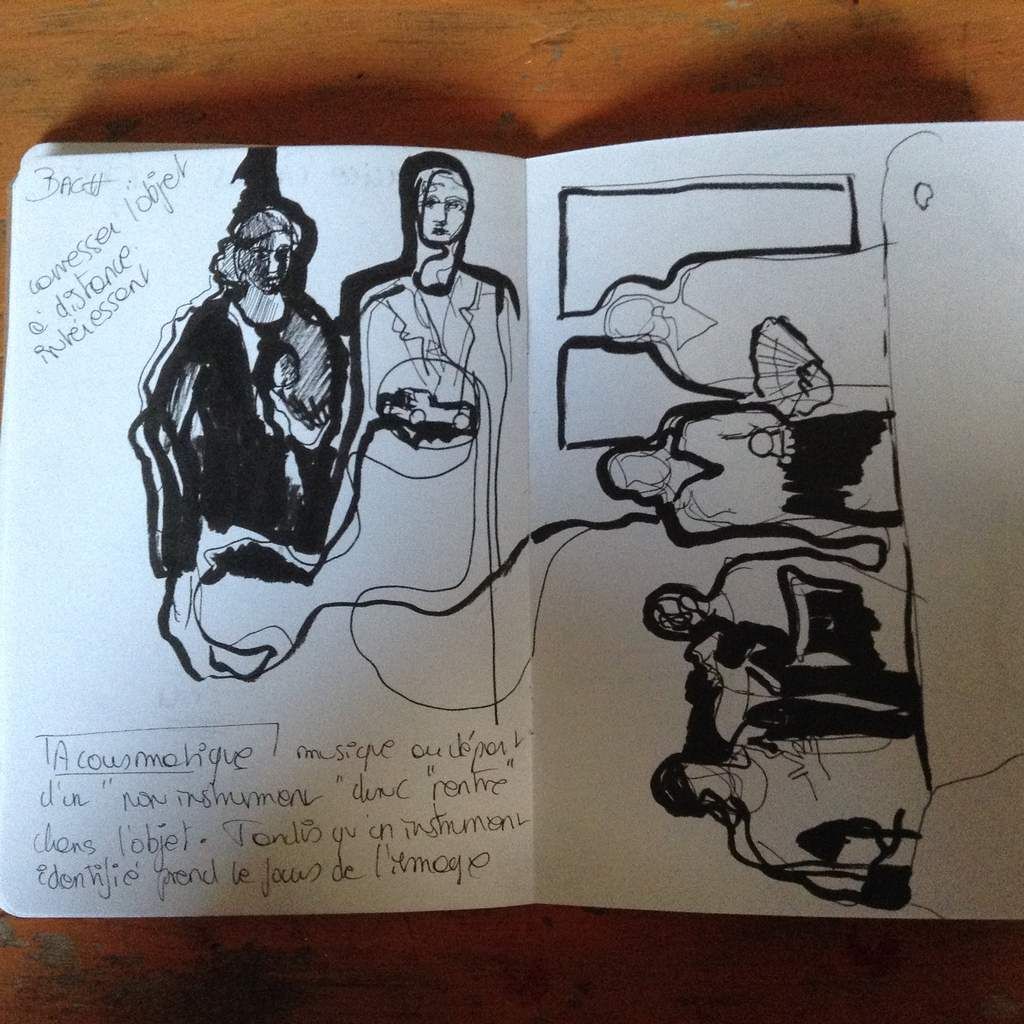 BACH
carresser l'objet
à distance.
intéressant
Acousmatique musique au départ
d'un "non instrument" donc "rentre"
dans l'objet. Tandis qu'un instrument
identifié prend le focus de l'image